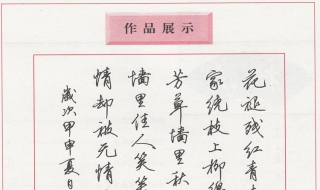 作品展示
花褪残红青
家绕枝上柳
芳草墙里秋
墙里佳人笑笑
情却被无情
歲次甲申夏日